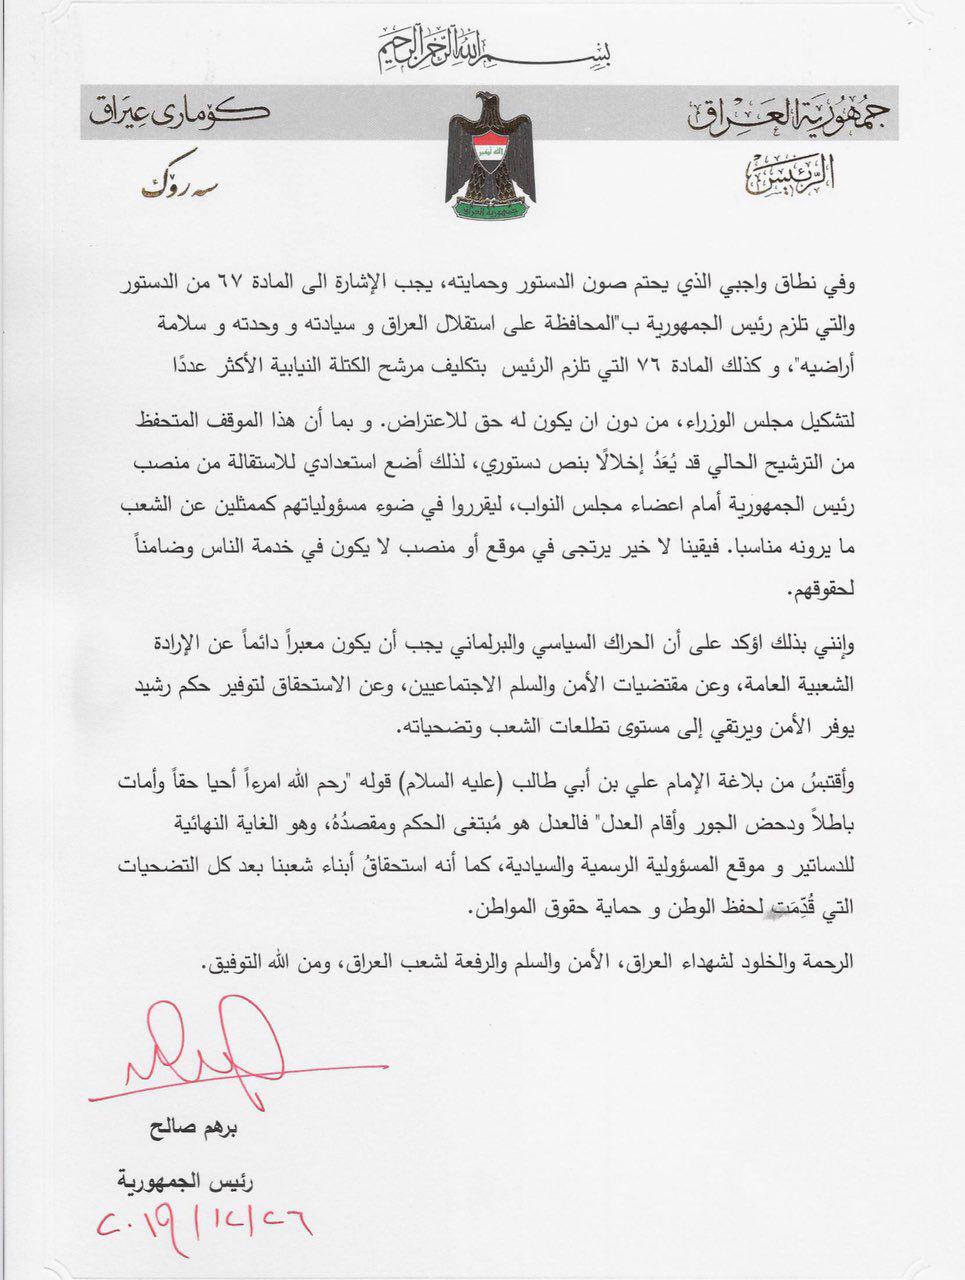 بسم الله الرحمن الرحيم
جمهورية العراق
كۆماری عێراق
الرئيس
سەرۆك
الله أكبر
جمهورية العراق
وفي نطاق واجبي الذي يحتم صون الدستور وحمايته، يجب الإشارة الى المادة ٦٧ من الدستور
والتي تلزم رئيس الجمهورية ب"المحافظة على استقلال العراق و سيادته و وحدته و سلامة
أراضيه"، و كذلك المادة ٧٦ التي تلزم الرئيس بتكليف مرشح الكتلة النيابية الأكثر عددًا
لتشكيل مجلس الوزراء، من دون ان يكون له حق للاعتراض. و بما أن هذا الموقف المتحفظ
من الترشيح الحالي قد يُعَدُ إخلالًا بنص دستوري، لذلك أضع استعدادي للاستقالة من منصب
رئيس الجمهورية أمام اعضاء مجلس النواب، ليقرروا في ضوء مسؤولياتهم كممثلين عن الشعب
ما يرونه مناسبا. فيقينا لا خير يرتجى في موقع أو منصب لا يكون في خدمة الناس وضامناً
لحقوقهم.
وإنني بذلك اؤكد على أن الحراك السياسي والبرلماني يجب أن يكون معبراً دائماً عن الإرادة
الشعبية العامة، وعن مقتضيات الأمن والسلم الاجتماعيين، وعن الاستحقاق لتوفير حكم رشيد
يوفر الأمن ويرتقي إلى مستوى تطلعات الشعب وتضحياته.
وأقتبسُ من بلاغة الإمام علي بن أبي طالب (عليه السلام) قوله "رحم الله امرءاً أحيا حقاً وأمات
باطلاً ودحض الجور وأقام العدل" فالعدل هو مُبتغى الحكم ومقصدُهُ، وهو الغاية النهائية
للدساتير و موقع المسؤولية الرسمية والسيادية، كما أنه استحقاقُ أبناء شعبنا بعد كل التضحيات
التي قُدِّمَت لحفظ الوطن و حماية حقوق المواطن.
الرحمة والخلود لشهداء العراق، الأمن والسلم والرفعة لشعب العراق، ومن الله التوفيق.
برهم صالح
رئيس الجمهورية
٢٠١٩/١٢/٢٦